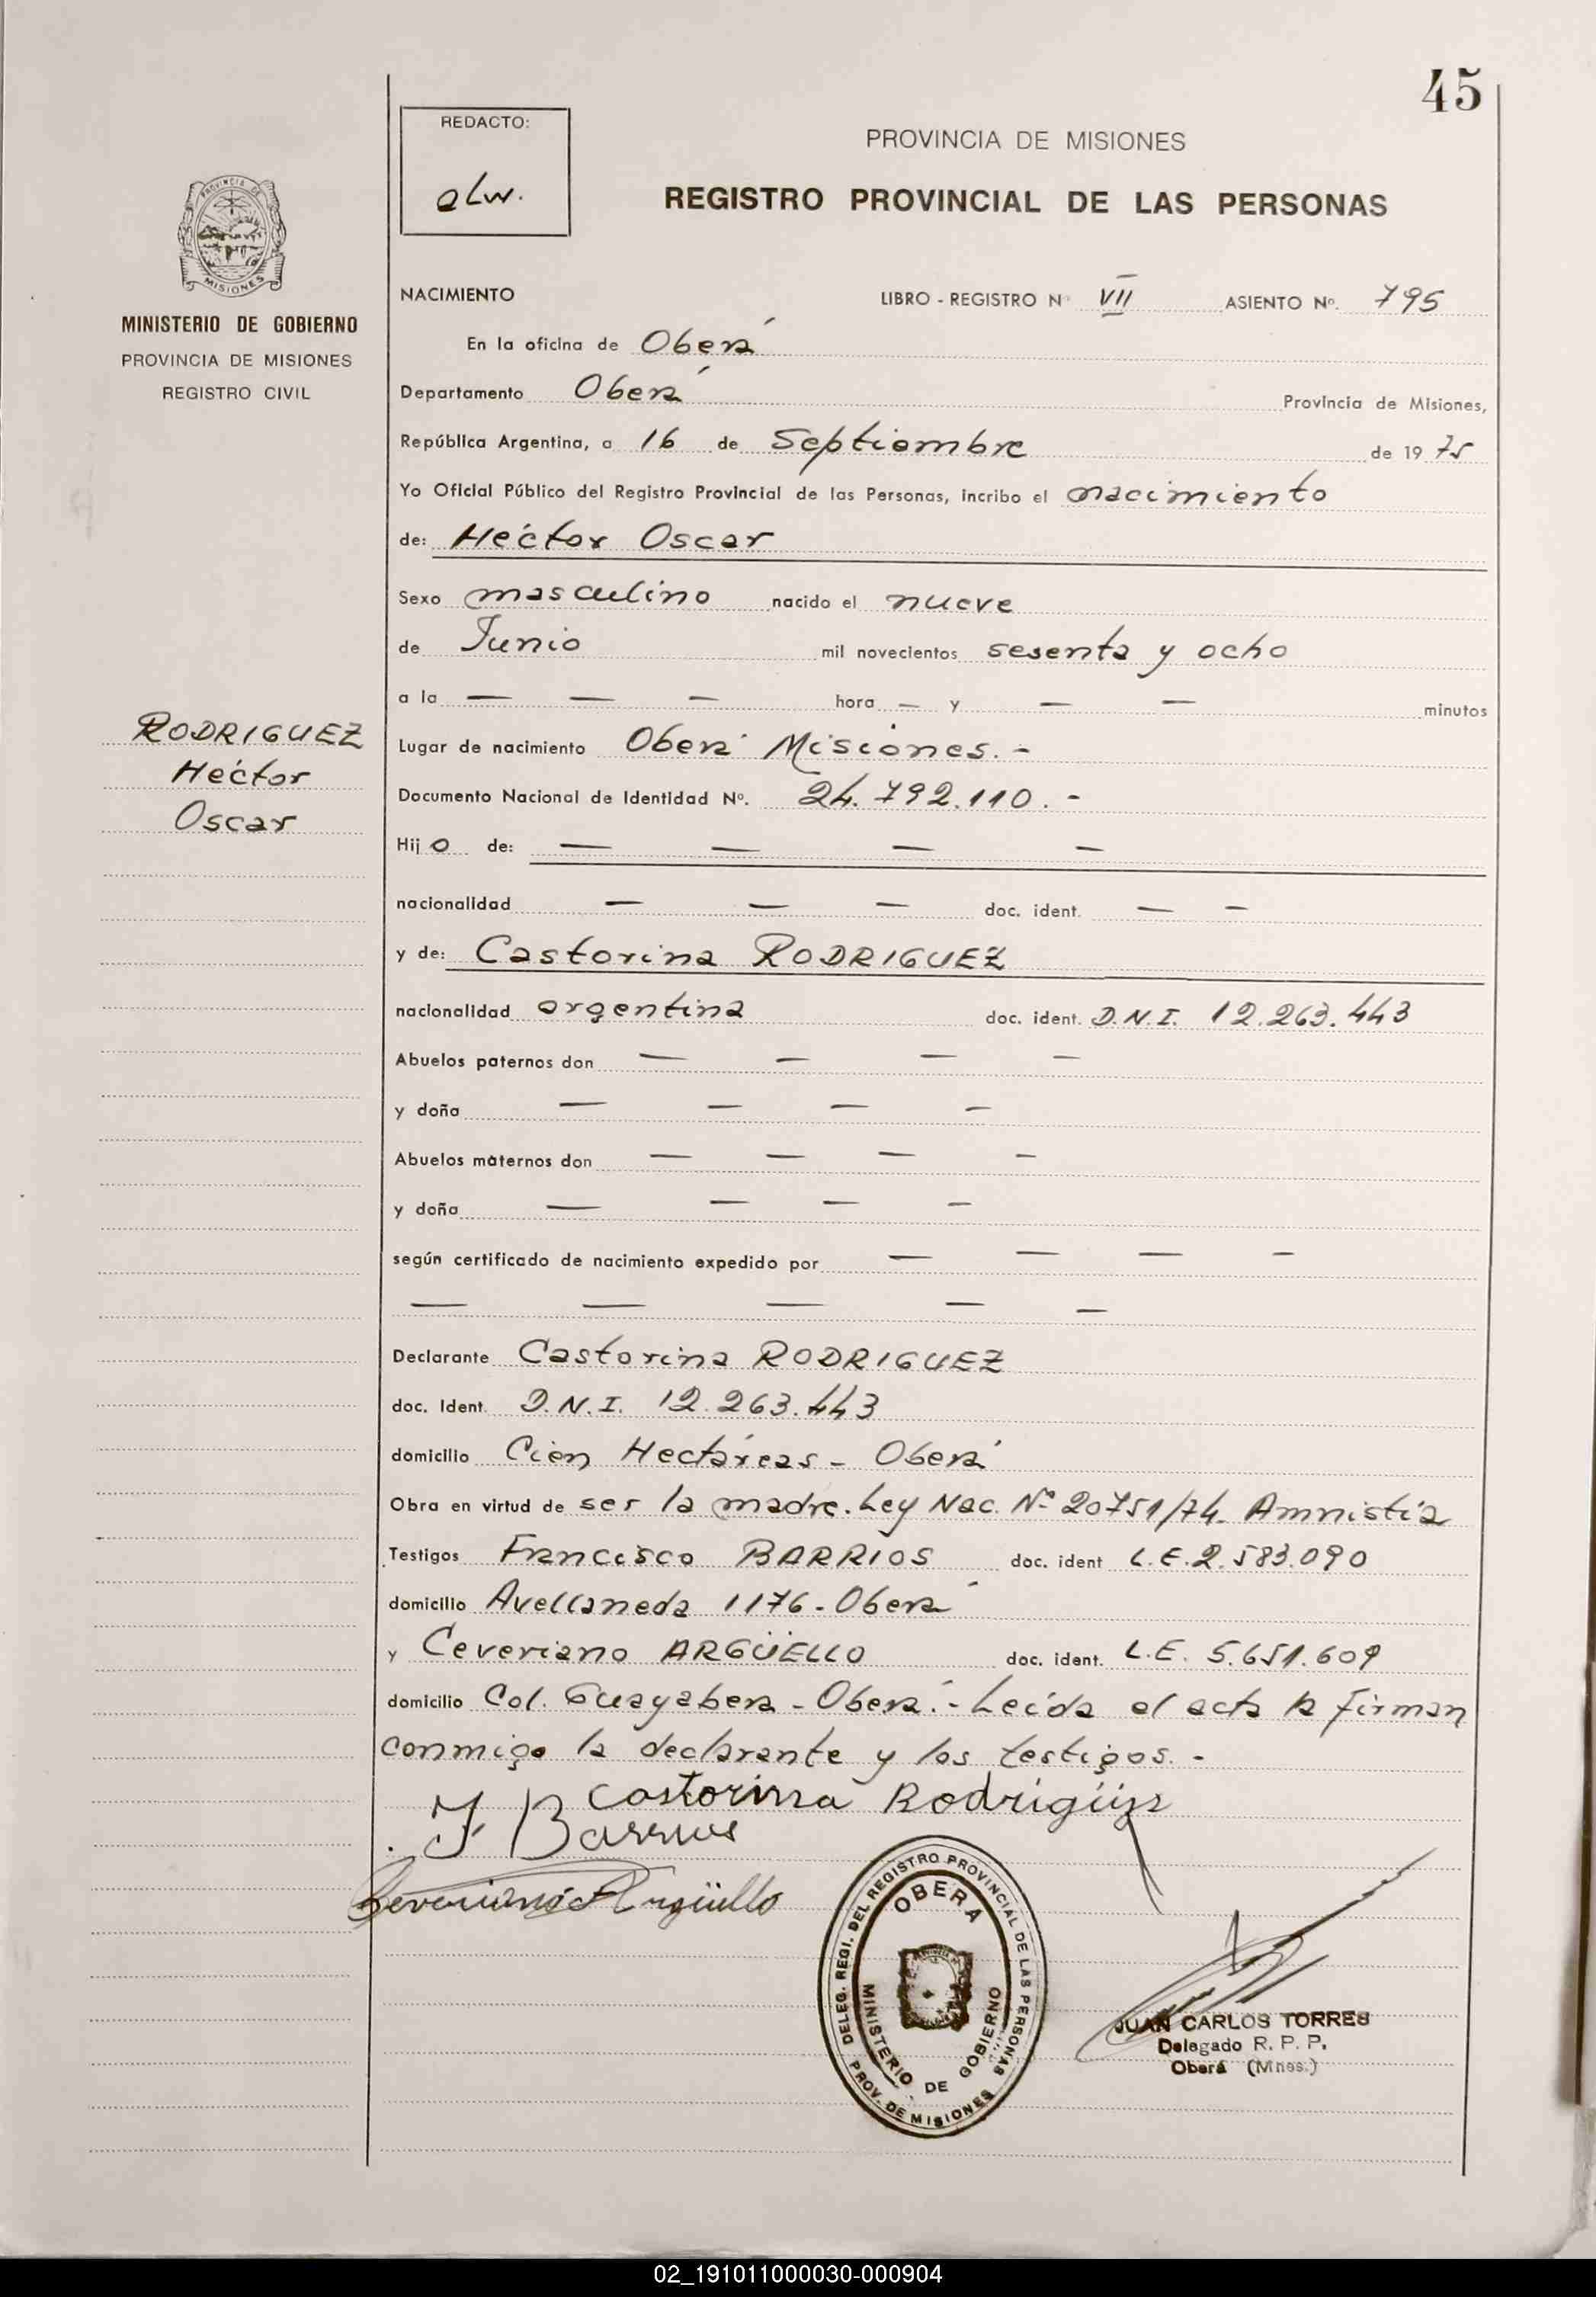 45
REDACTO:
alw.
PROVINCIA DE MISIONES
REGISTRO PROVINCIAL DE LAS PERSONAS
PROVINCIA DE
MISIONES
MINISTERIO DE GOBIERNO
PROVINCIA DE MISIONES
REGISTRO CIVIL
NACIMIENTO LIBRO - REGISTRO Nº VII ASIENTO Nº. 795
En la oficina de Oberá
Departamento Oberá Provincia de Misiones,
República Argentina, a 16 de Septiembre de 1975
Yo Oficial Público del Registro Provincial de las Personas, incribo el nacimiento
de: Héctor Oscar
Sexo masculino nacido el nueve
de Junio mil novecientos sesenta y ocho
a la — — — hora — y — — minutos
RODRIGUEZ
Héctor
Oscar
Lugar de nacimiento Oberá Misiones. -
Documento Nacional de Identidad Nº. 24.792.110. -
Hijo de: — — — —
nacionalidad — — — doc. ident. — —
y de: Castorina RODRIGUEZ
nacionalidad argentina doc. ident. D.N.I. 12.263.443
Abuelos paternos don — — — —
y doña — — — —
Abuelos maternos don — — — —
y doña — — — —
según certificado de nacimiento expedido por — — — —
— — — — —
Declarante Castorina RODRIGUEZ
doc. Ident. D.N.I. 12.263.443
domicilio Cien Hectáreas - Oberá
Obra en virtud de ser la madre. Ley Nac. Nº 20751/74. Amnistía
Testigos Francisco BARRIOS doc. ident L.E. 2.583.090
domicilio Avellaneda 1176 - Oberá
y Ceveriano ARGÜELLO doc. ident. L.E. 5.651.609
domicilio Col. Guayabera - Oberá. - Leída el acta la firman
conmigo la declarante y los testigos. -
Castorina Rodrigüiz
F Barrios
Severiano Argüello
DELEG. REGI. DEL REGISTRO PROVINCIAL DE LAS PERSONAS
OBERA
MINISTERIO DE GOBIERNO
PROV. DE MISIONES
JUAN CARLOS TORRES
Delegado R. P. P.
Oberá (Mnes.)
02_191011000030-000904